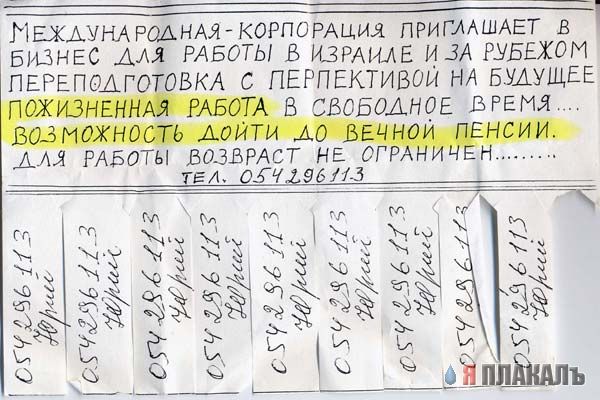 МЕЖДУНАРОДНАЯ-КОРПОРАЦИЯ ПРИГЛАШАЕТ В
БИЗНЕС ДЛЯ РАБОТЫ В ИЗРАИЛЕ И ЗА РУБЕЖОМ
ПЕРЕПОДГОТОВКА С ПЕРПЕКТИВОЙ НА БУДУЩЕЕ
ПОЖИЗНЕННАЯ РАБОТА В СВОБОДНОЕ ВРЕМЯ....
ВОЗМОЖНОСТЬ ДОЙТИ ДО ВЕЧНОЙ ПЕНСИИ.
ДЛЯ РАБОТЫ ВОЗВРАСТ НЕ ОГРАНИЧЕН........
ТЕЛ. 054296113
054296113
Юрий
054296113
Юрий
054296113
Юрий
054296113
Юрий
054296113
Юрий
054296113
Юрий
054296113
Юрий
054296113
Юрий
054296113
Юрий
Я ПЛАКАЛЪ